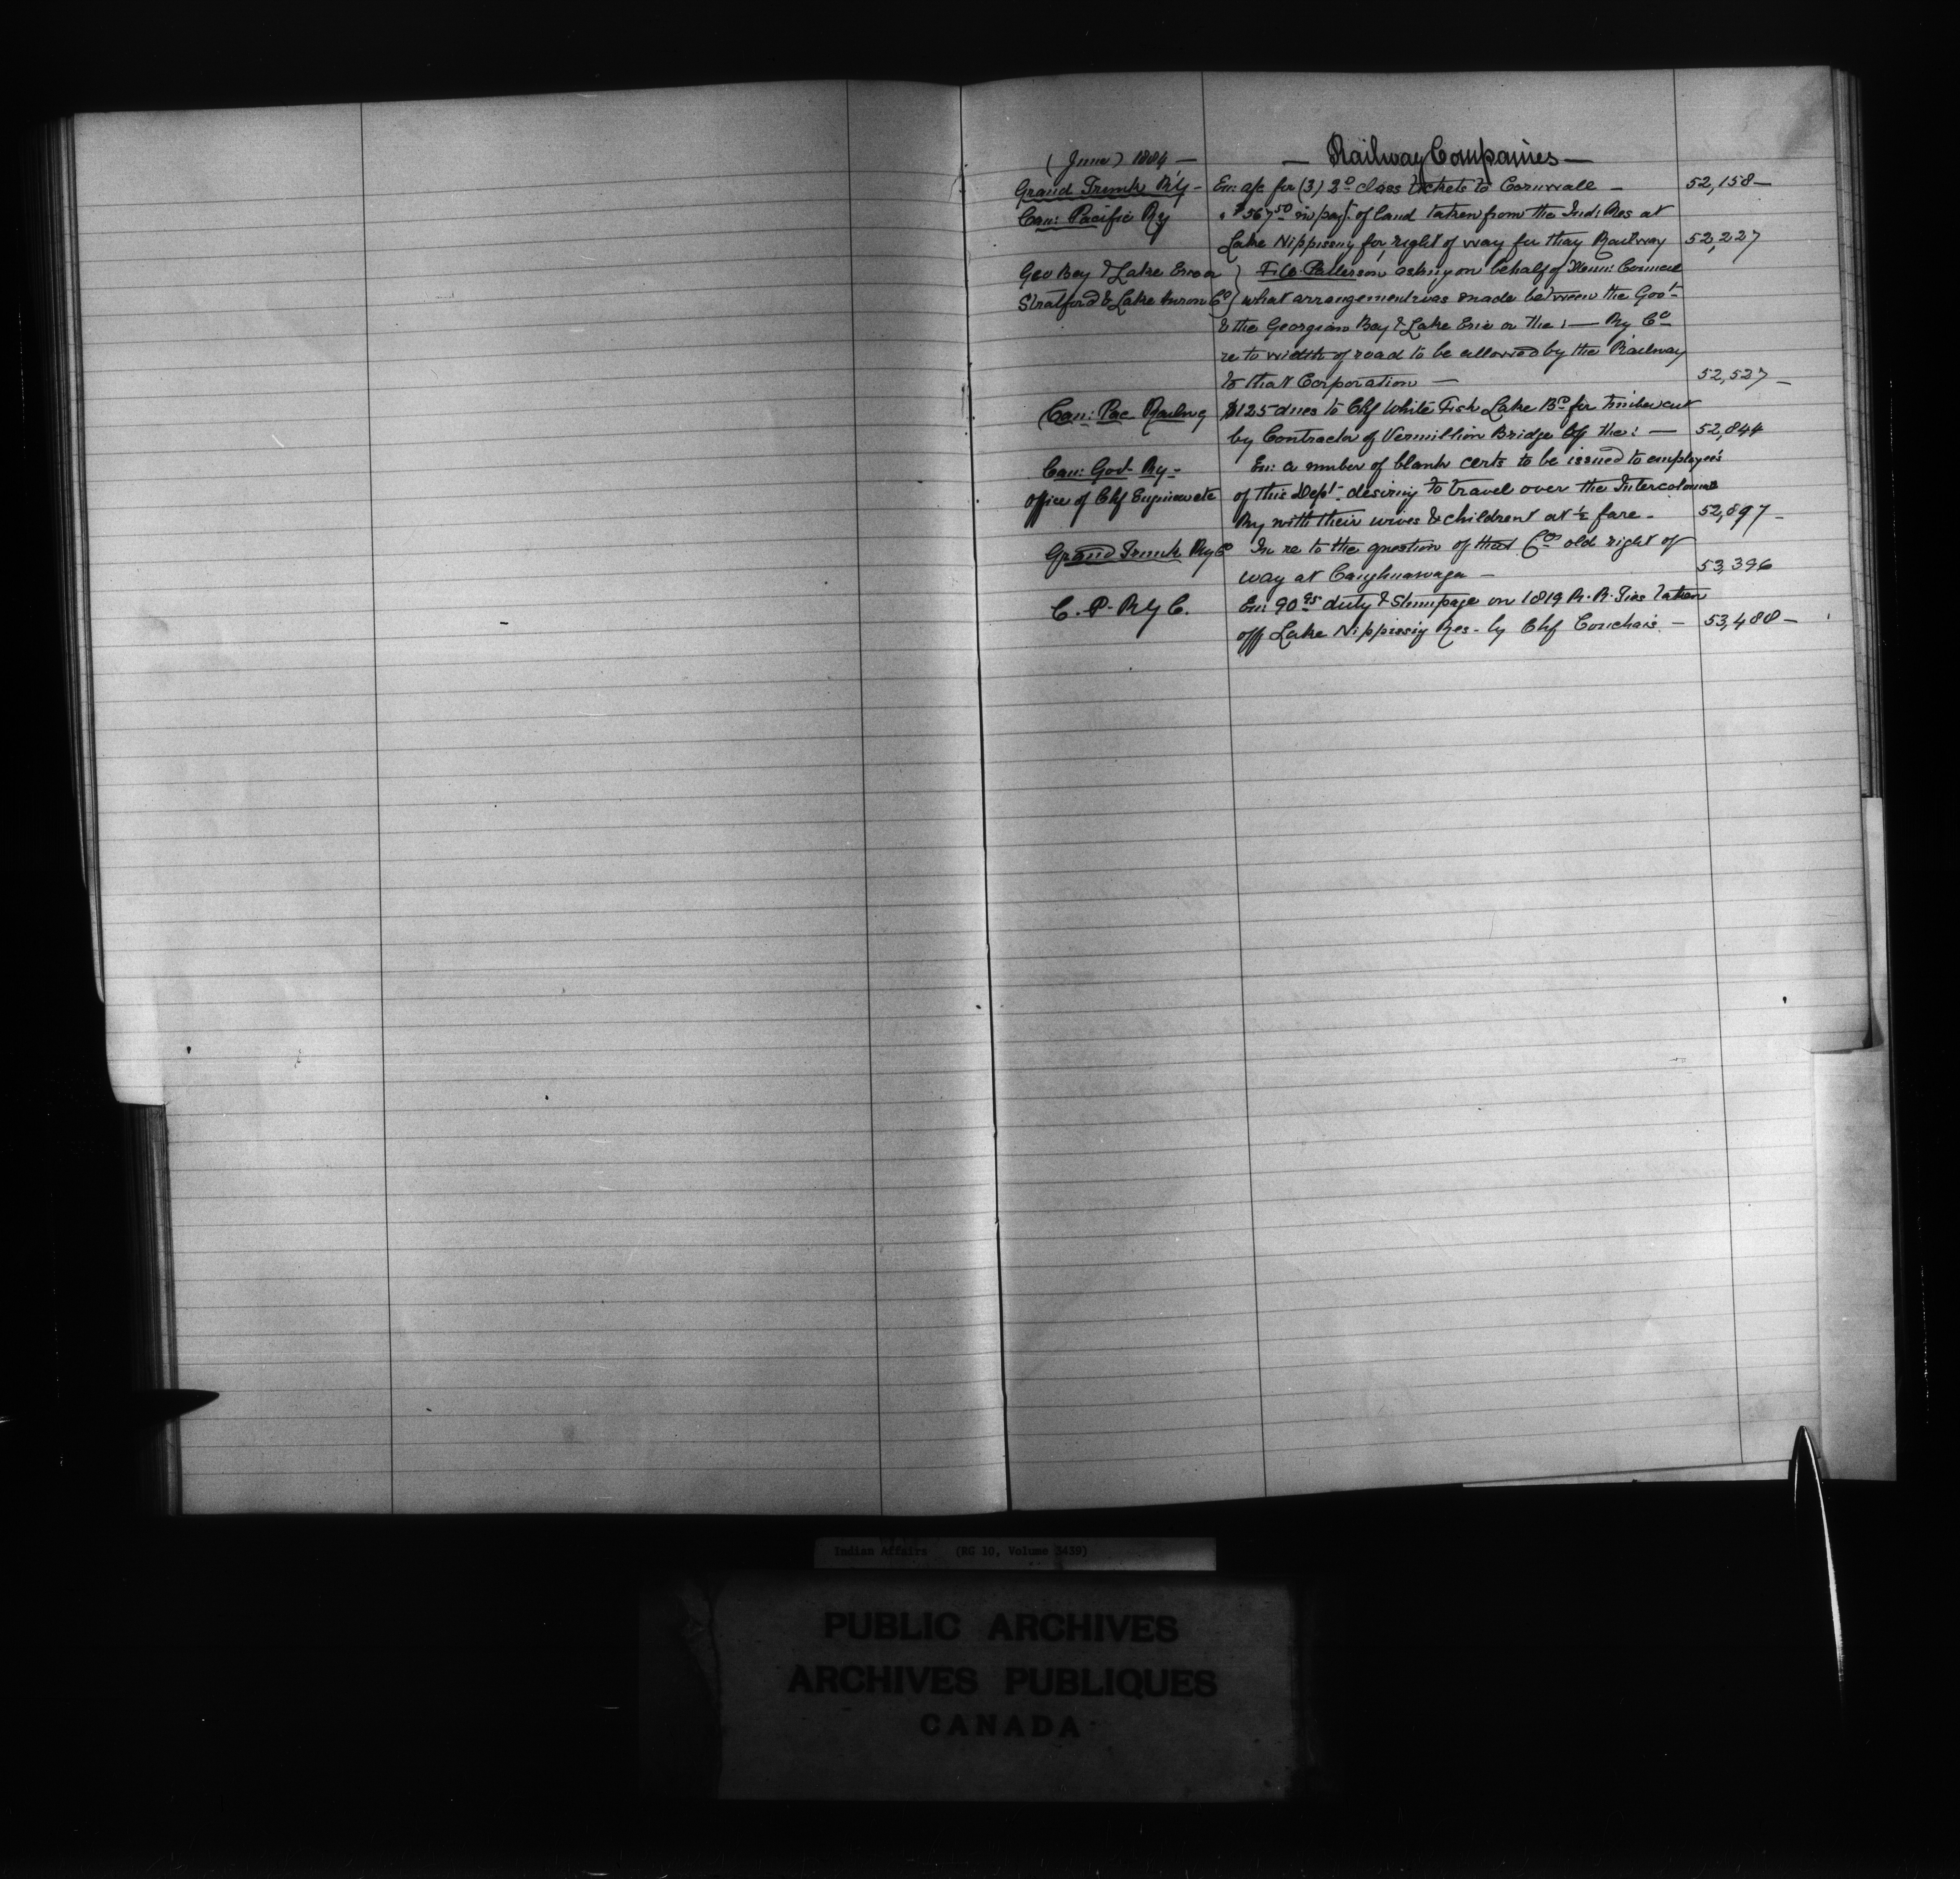 (June) 1884 — — Railway Companies —
Grand Trunk R'y - En: a/c for (3) 2º class tickets to Cornwall — 52,158 —
Can: Pacific Ry " $567.50 in payt. of land taken from the Ind: Res at
Lake Nippissing for right of way for thay Railway 52,227
Geo Bay & Lake Erie or } F. Co. Patterson asking on behalf of Council
Stratford & Lake huron Co } what arrangement was made between the Govt.
& the Georgian Bay & Lake Erie or the : — Ry Co
re to width of road to be allowed by the Railway
to that Corporation — 52,527 —
Can: Pac Railwy $125 dues to Chf White Fish Lake Bd for timber cut
by Contractor of Vermillion Bridge of the : — 52,844
Can: Govt Ry - En: a number of blank certs to be issued to employees
Office of Chf Engineer etc of this Dept. desiring to travel over the Intercolonial
Ry with their wives & children at ½ fare - 52,897 -
Grand Trunk Ry Co In re to the question of that Cos old right of
way at Caughnawaga — 53,396
C. P. Ry C. En: 90.95 duty & Stumpage on 1819 R. R. Ties taken
off Lake Nippissig Res - by Chf Couchais — 53,488 —
Indian Affairs (RG 10, Volume 3439)
PUBLIC ARCHIVES
ARCHIVES PUBLIQUES
CANADA